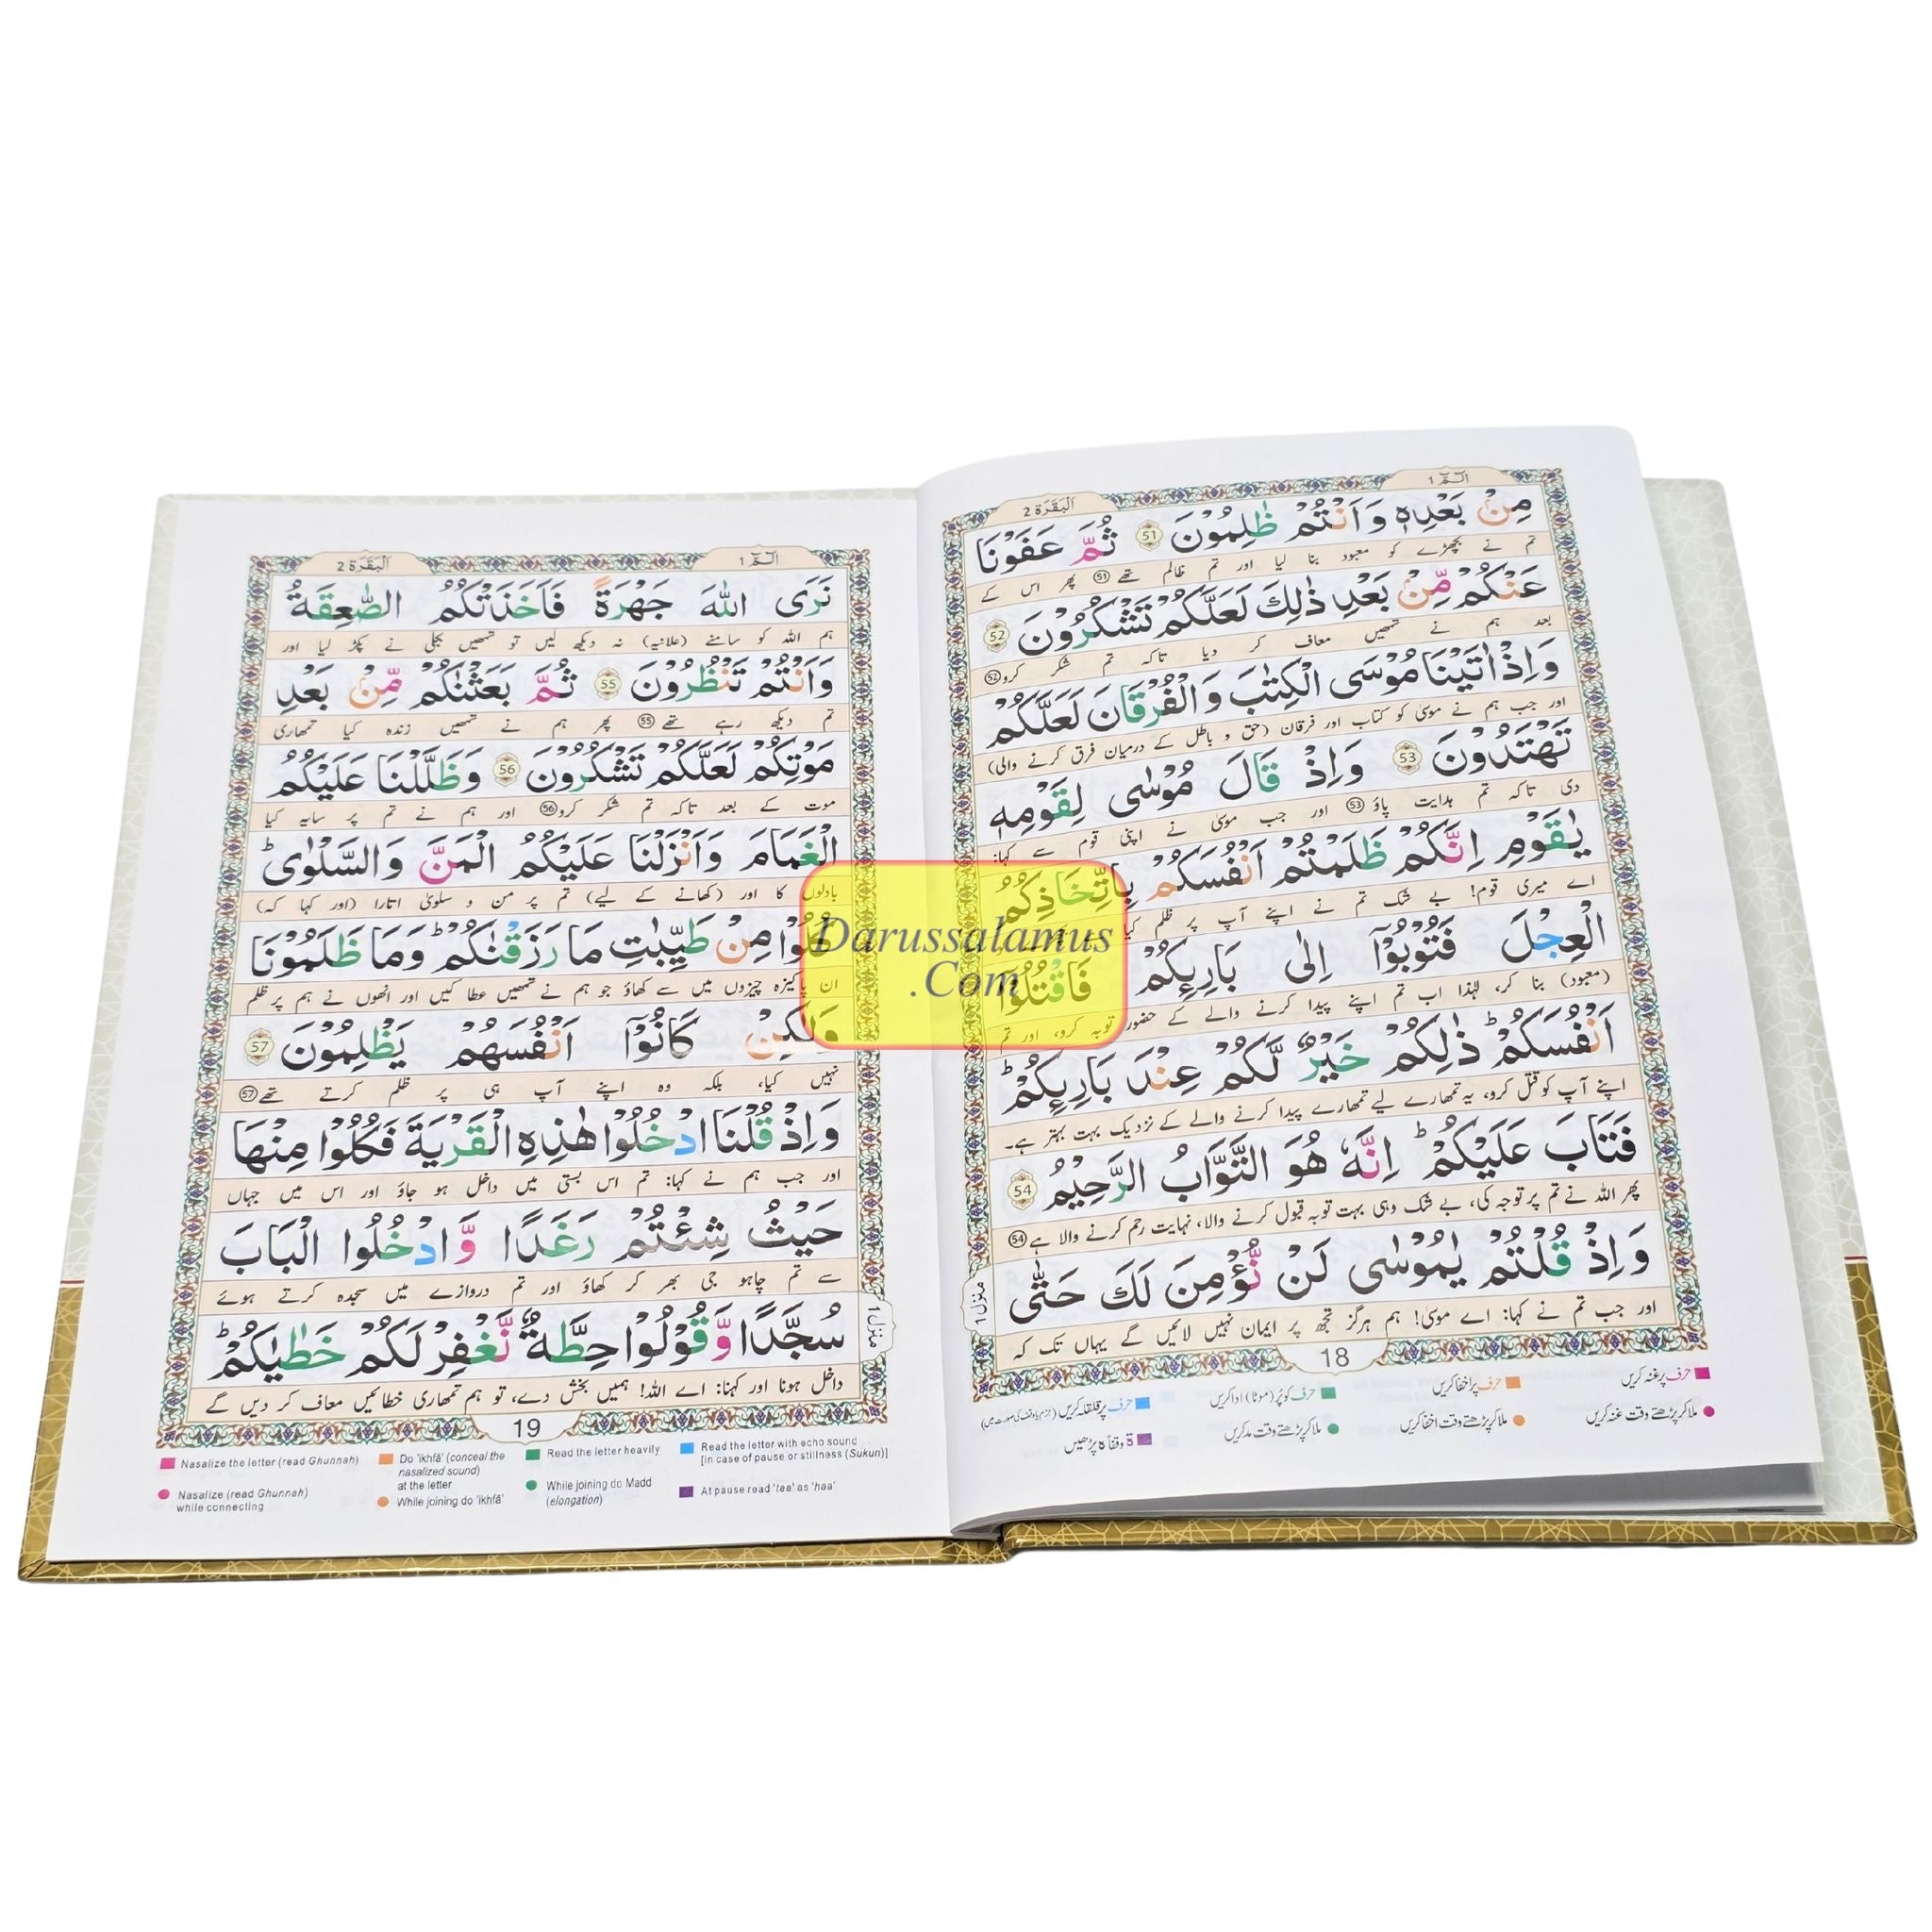 الٓـمّٓ 1
اَلْبَقَرَة 2
مِنْۢ بَعْدِهٖ وَاَنْتُمْ ظٰلِمُوْنَ 51 ثُمَّ عَفَوْنَا
تم نے بچھڑے کو معبود بنا لیا اور تم ظالم تھے 51 پھر اس کے
عَنْكُمْ مِّنْۢ بَعْدِ ذٰلِكَ لَعَلَّكُمْ تَشْكُرُوْنَ 52
بعد ہم نے تمھیں معاف کر دیا تاکہ تم شکر کرو 52
وَاِذْ اٰتَيْنَا مُوْسَى الْكِتٰبَ وَالْفُرْقَانَ لَعَلَّكُمْ
اور جب ہم نے موسیٰ کو کتاب اور فرقان (حق و باطل کے درمیان فرق کرنے والی)
تَهْتَدُوْنَ 53 وَاِذْ قَالَ مُوْسٰى لِقَوْمِهٖ
دی تاکہ تم ہدایت پاؤ 53 اور جب موسیٰ نے اپنی قوم سے کہا:
يٰقَوْمِ اِنَّكُمْ ظَلَمْتُمْ اَنْفُسَكُمْ بِاتِّخَاذِكُمُ
اے میری قوم! بے شک تم نے اپنے آپ پر ظلم کیا
الْعِجْلَ فَتُوْبُوْۤا اِلٰى بَارِىِٕكُمْ فَاقْتُلُوْۤا
(معبود) بنا کر، لہٰذا اب تم اپنے پیدا کرنے والے کے حضور توبہ کرو، اور تم
اَنْفُسَكُمْ ؕ ذٰلِكُمْ خَيْرٌ لَّكُمْ عِنْدَ بَارِىِٕكُمْ ؕ
اپنے آپ کو قتل کرو، یہ تمھارے لیے تمھارے پیدا کرنے والے کے نزدیک بہت بہتر ہے۔
فَتَابَ عَلَيْكُمْ ؕ اِنَّهٗ هُوَ التَّوَّابُ الرَّحِيْمُ 54
پھر اللہ نے تم پر توجہ کی، بے شک وہی بہت توبہ قبول کرنے والا، نہایت رحم کرنے والا ہے 54
وَاِذْ قُلْتُمْ يٰمُوْسٰى لَنْ نُّؤْمِنَ لَكَ حَتّٰى
اور جب تم نے کہا: اے موسیٰ! ہم ہرگز تجھ پر ایمان نہیں لائیں گے یہاں تک کہ
منزل 1
18
حرف پر غنہ کریں
حرف پر اخفا کریں
حرف کو پُر (موٹا) ادا کریں
حرف پر قلقلہ کریں
ملا کر پڑھتے وقت غنہ کریں
ملا کر پڑھتے وقت اخفا کریں
ملا کر پڑھتے وقت مد کریں
ة وقفاً ہ پڑھیں
الٓـمّٓ 1
اَلْبَقَرَة 2
نَرَى اللّٰهَ جَهْرَةً فَاَخَذَتْكُمُ الصّٰعِقَةُ
ہم اللہ کو سامنے (علانیہ) نہ دیکھ لیں تو تمھیں بجلی نے پکڑ لیا اور
وَاَنْتُمْ تَنْظُرُوْنَ 55 ثُمَّ بَعَثْنٰكُمْ مِّنْۢ بَعْدِ
تم دیکھ رہے تھے 55 پھر ہم نے تمھیں زندہ کیا تمھاری
مَوْتِكُمْ لَعَلَّكُمْ تَشْكُرُوْنَ 56 وَظَلَّلْنَا عَلَيْكُمُ
موت کے بعد تاکہ تم شکر کرو 56 اور ہم نے تم پر سایہ کیا
الْغَمَامَ وَاَنْزَلْنَا عَلَيْكُمُ الْمَنَّ وَالسَّلْوٰى ؕ
بادلوں کا اور (کھانے کے لیے) تم پر من و سلویٰ اتارا (اور کہا کہ)
كُلُوْا مِنْ طَيِّبٰتِ مَا رَزَقْنٰكُمْ ؕ وَمَا ظَلَمُوْنَا
ان پاکیزہ چیزوں میں سے کھاؤ جو ہم نے تمھیں عطا کیں اور انھوں نے ہم پر ظلم
وَلٰكِنْ كَانُوْۤا اَنْفُسَهُمْ يَظْلِمُوْنَ 57
نہیں کیا، بلکہ وہ اپنے آپ ہی پر ظلم کرتے تھے 57
وَاِذْ قُلْنَا ادْخُلُوْا هٰذِهِ الْقَرْيَةَ فَكُلُوْا مِنْهَا
اور جب ہم نے کہا: تم اس بستی میں داخل ہو جاؤ اور اس میں جہاں
حَيْثُ شِئْتُمْ رَغَدًا وَّادْخُلُوا الْبَابَ
سے تم چاہو جی بھر کر کھاؤ اور تم دروازے میں سجدہ کرتے ہوئے
سُجَّدًا وَّقُوْلُوْا حِطَّةٌ نَّغْفِرْ لَكُمْ خَطٰيٰكُمْ ؕ
داخل ہونا اور کہنا: اے اللہ! ہمیں بخش دے، تو ہم تمھاری خطائیں معاف کر دیں گے
منزل 1
19
Nasalize the letter (read Ghunnah)
Do 'ikhfâ' (conceal the
nasalized sound)
at the letter
Read the letter heavily
Read the letter with echo sound
[in case of pause or stillness (Sukun)]
Nasalize (read Ghunnah)
while connecting
While joining do 'ikhfâ'
While joining do Madd
(elongation)
At pause read 'taa' as 'haa'
Darussalamus
.Com